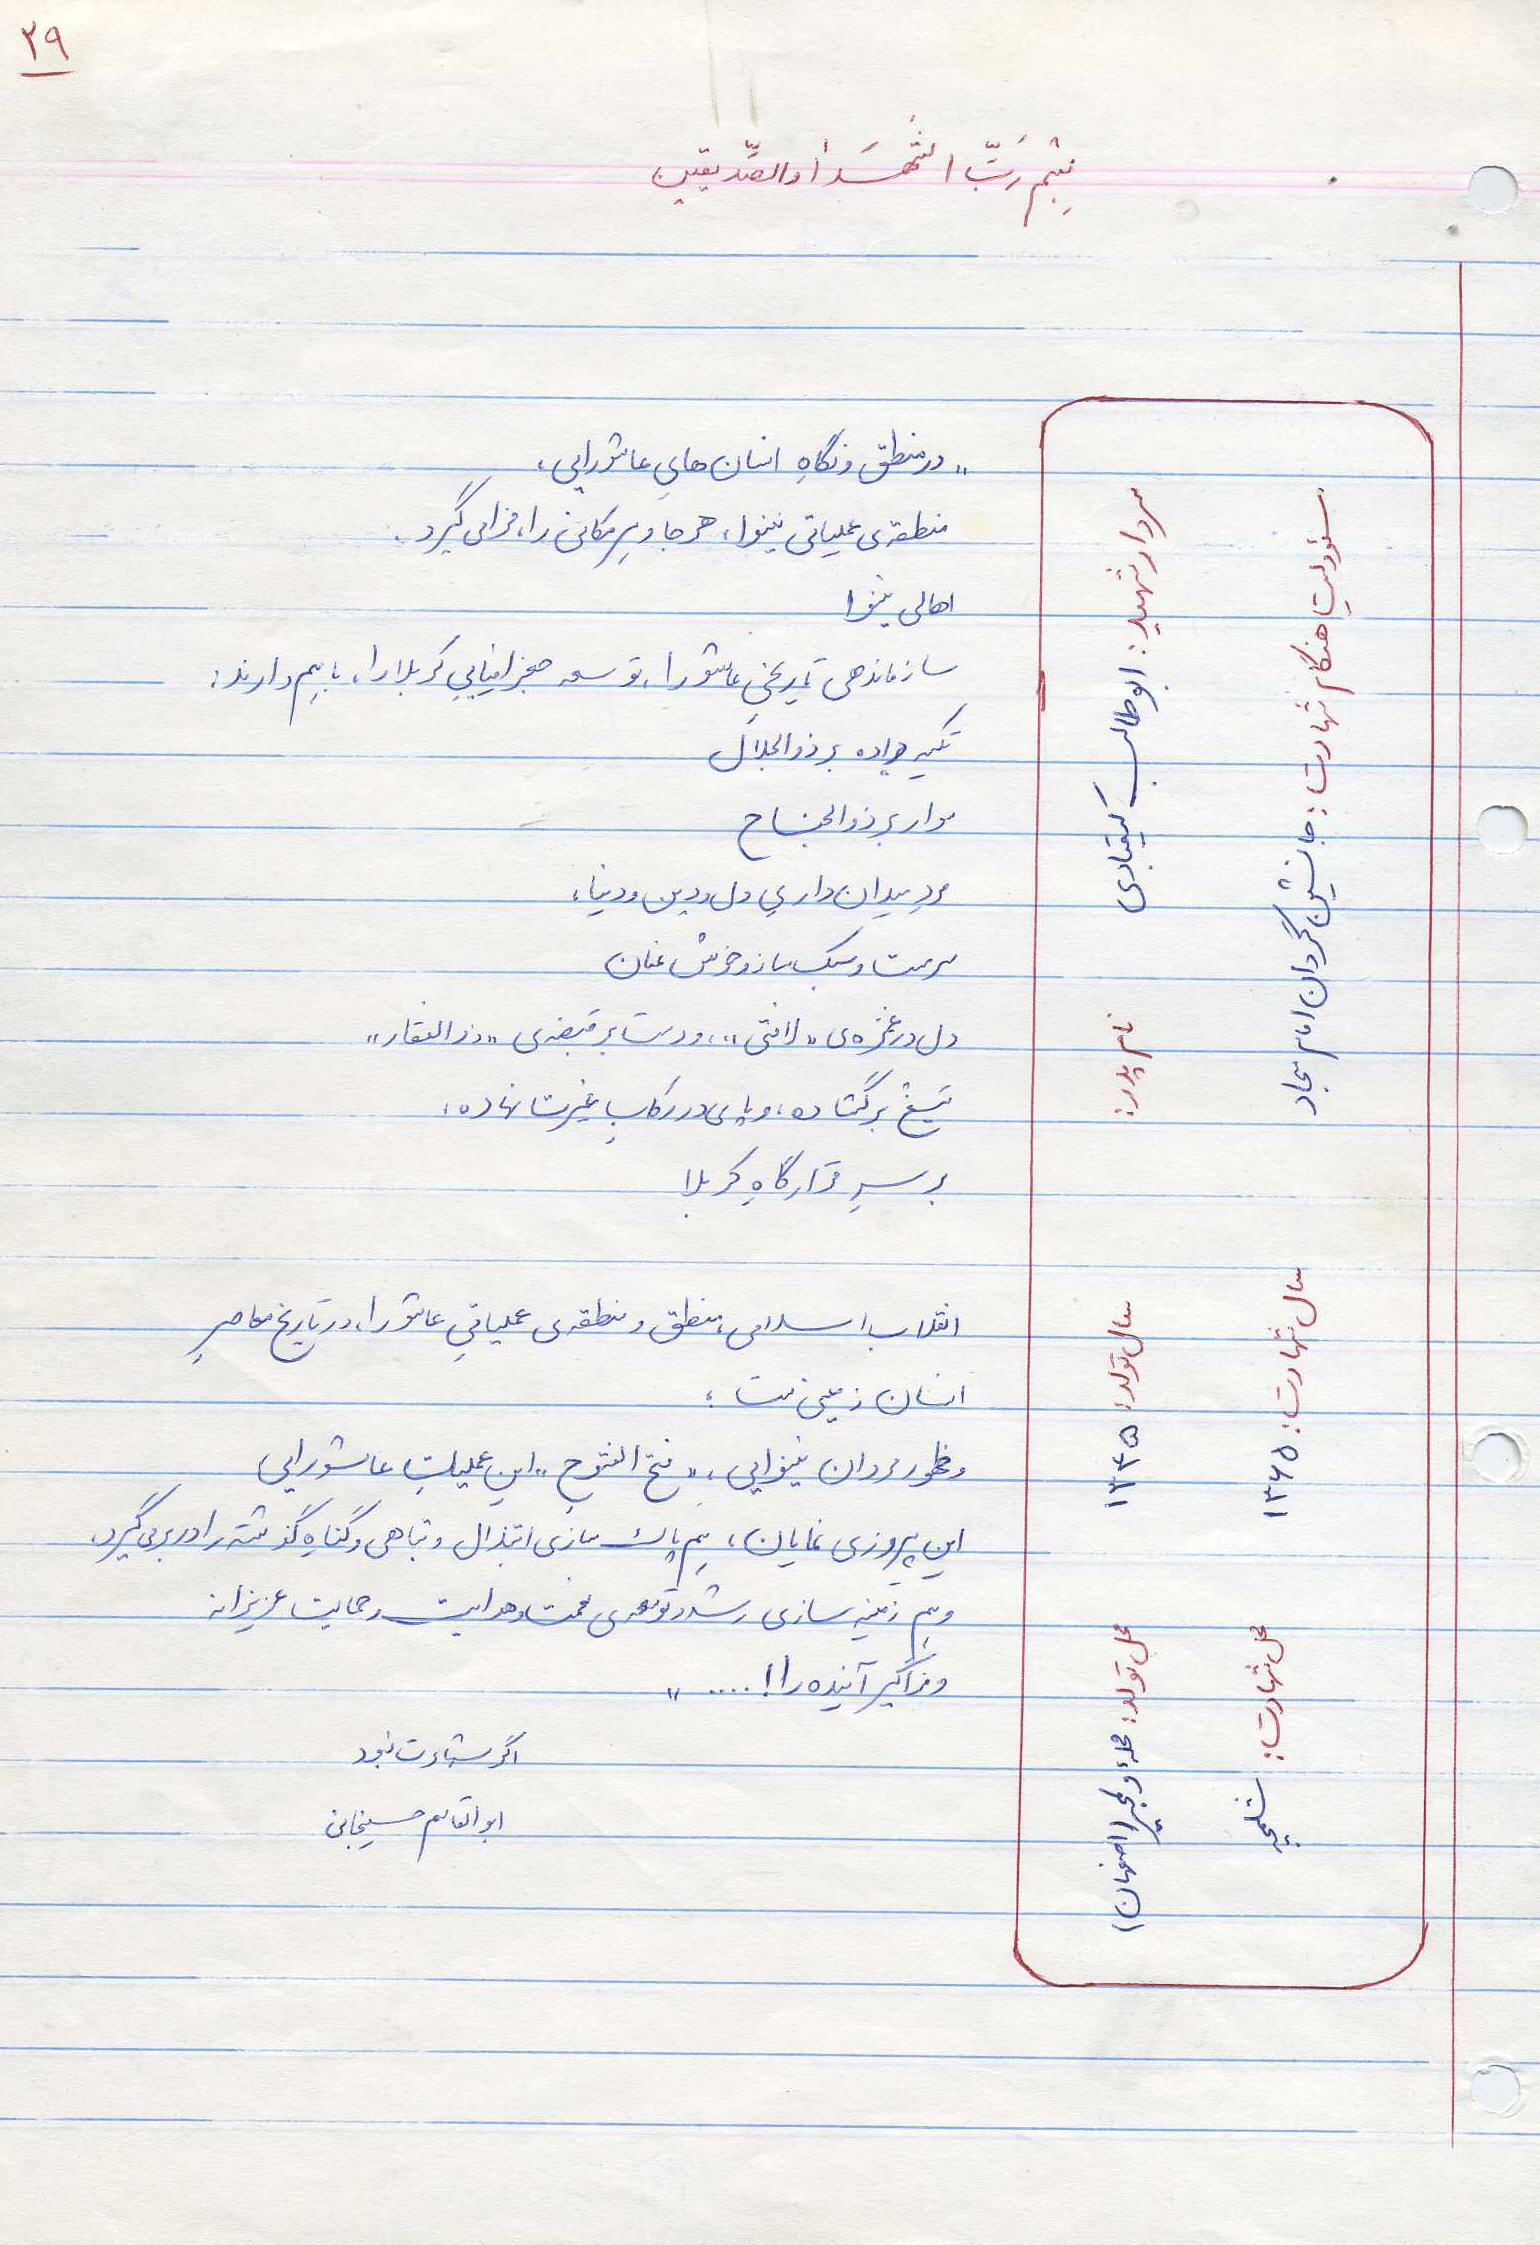 ۲۹
بِسْمِ رَبِّ الشُّهَداء والصِّدیقین
سردار شهید: ابوطالب کیقبادی
نام پدر:
سال تولد: ۱۳۳۵
محل تولد: محله ولیچر (اصفهان)
مسئولیت هنگام شهادت: جانشین گردان امام سجاد
سال شهادت: ۱۳۶۵
محل شهادت: شلمچه
"در منطق و نگاهِ انسان‌هایِ عاشورایی،
منطقه‌ی عملیاتی نینوا، هر جا و هر مکانی را، فرامی‌گیرد.
اهالی نینوا
سازماندهی تاریخیِ عاشورا، توسعه جغرافیاییِ کربلا را، با هم دارند:
تکیه داده بر ذوالجلال
سوار بر ذوالجناح
مردِ میدان‌داریِ دل و دین و دنیا،
سرمست و سبک‌ساز و خوش عنان
دل در غمزه‌ی "لافتی"، و دست بر قبضه‌ی "ذوالفقار"
تیغ برگشاده، و پای در رکابِ غیرت نهاده،
بر سرِ قرارگاهِ کربلا
انقلاب اسلامی، منطق و منطقه‌ی عملیاتیِ عاشورا، در تاریخِ معاصرِ
انسان زمینی است؛
و ظهور مردان نینوایی، "فتح الفتوح" این عملیاتِ عاشورایی
این پیروزی نمایان، هم پاک‌سازی ابتذال و تباهی و گناهِ گذشته را در بر می‌گیرد،
و هم زمینه‌سازی رشد و توسعه‌ی نعمت و هدایت و حمایت عزیزانه
و فراگیر آینده را! .... "
اگر شهادت نبود
ابوالقاسم حسینجانی